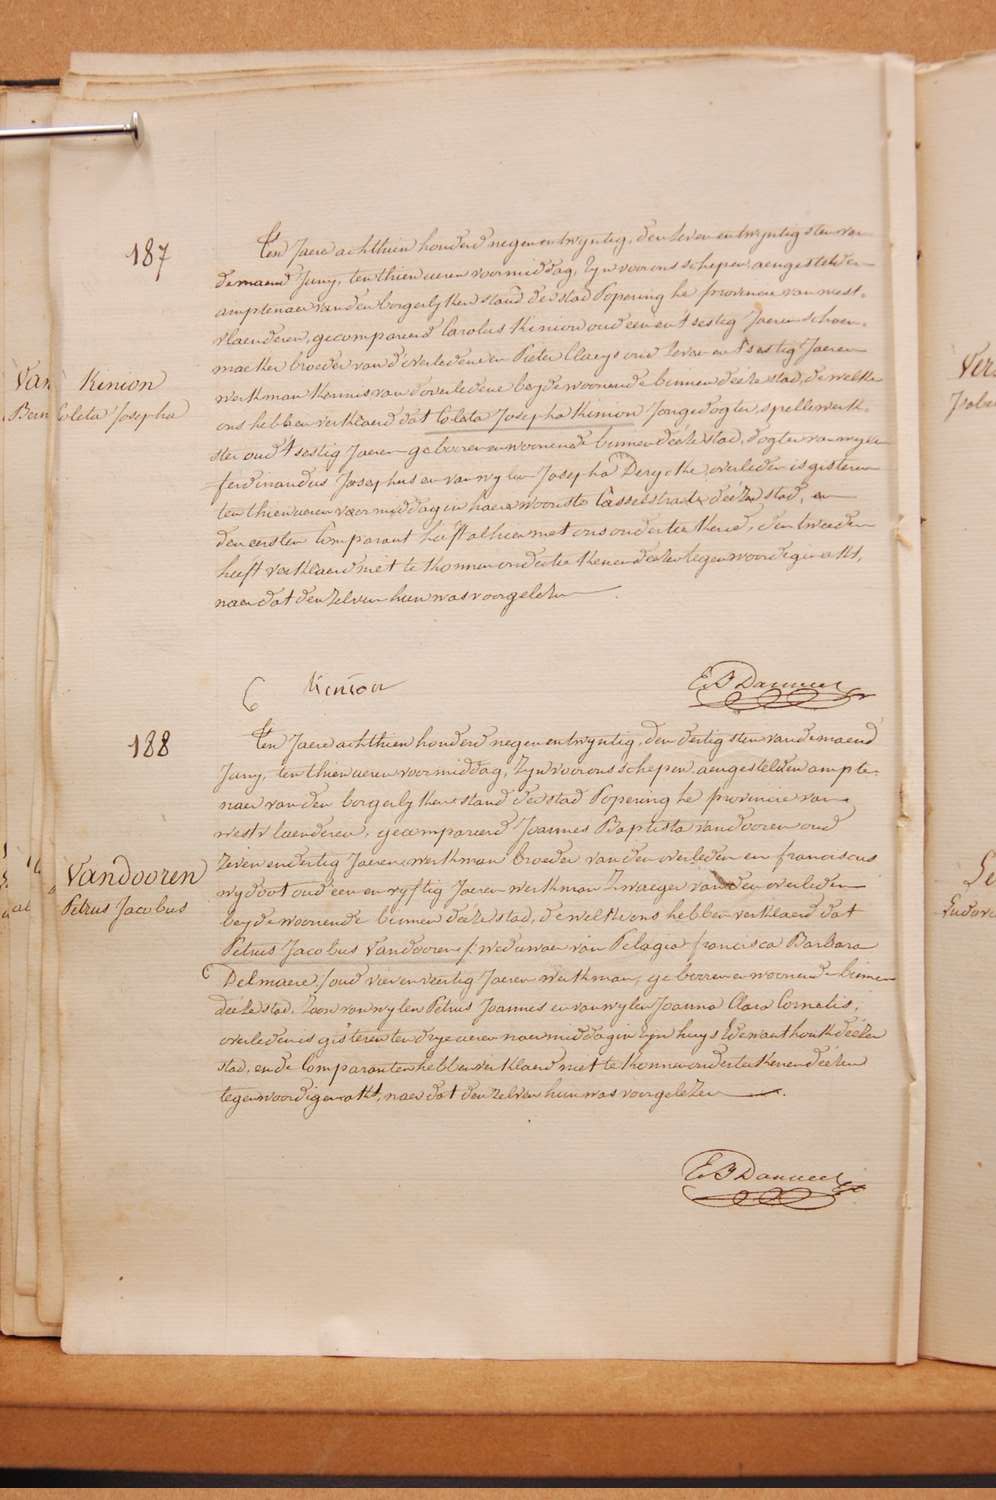 187
Kinion
Coleta Josepha
Ten Jaere achthien honderd negen en twyntig, den zeven en twyntigsten van
de maend Juny, ten thien ueren voormiddag, Zyn voor ons schepen aengestelden
amptenaer van den borgerlyken stand der stad Poperinghe provincie van west-
vlaenderen, gecompareerd Carolus Kinion oud een en t'sestig Jaeren schoen-
maeker broeder van d'overledene en Pieter Claeys oud zeven en t'sestig Jaeren
werkman kennis van d'overledene beyde woonende binnen deeze stad, de welke
ons hebben verklaerd dat Coleta Josepha Kinion Jongedogter, spellewerk-
ster oud t'sestig Jaeren geboren en woonende binnen deeze stad, dogter van wylen
ferdinandus Josephus en van wylen Josepha Derycke, overleden is gisteren
ten thien ueren voormiddag in haere woonste Casselstraete deezer stad, en
den eersten Comparant heeft alhier met ons onderteekend, den tweeden
heeft verklaerd niet te konnen onderteekenen deezen tegenwoordigen akt,
naer dat den zelven hun was voorgelezen
Kinion
E B Danneel
188
Vandooren
Petrus Jacobus
Ten Jaere achthien honderd negen en twyntig, den dertigsten van de maend
Juny, ten thien ueren voormiddag, Zyn voor ons schepen aengestelden ampte-
naer van den borgerlyken stand der stad Poperinghe provincie van
westvlaenderen, gecompareerd Joannes Baptista vandooren oud
zeven en dertig Jaeren werkman broeder van den overleden en franciscus
wydoot oud een en vyftig Jaeren werkman Zwaeger van den overleden
beyde woonende binnen deeze stad, de welke ons hebben verklaerd dat
Petrus Jacobus Vandooren, weduwaer van Pelagia francisca Barbara
Delmaere, oud vier en veertig Jaeren werkman, geboren en woonende binnen
deeze stad, zoon van wylen Petrus Joannes en van wylen Joanna Clara Cornelis,
overleden is gisteren ten drye ueren naermiddag in zyn huys Edewaerthoek deezer
stad, en de Comparanten hebben verklaerd niet te konnen onderteekenen deezen
tegenwoordigen akt, naer dat den zelven hun was voorgelezen
E B Danneel